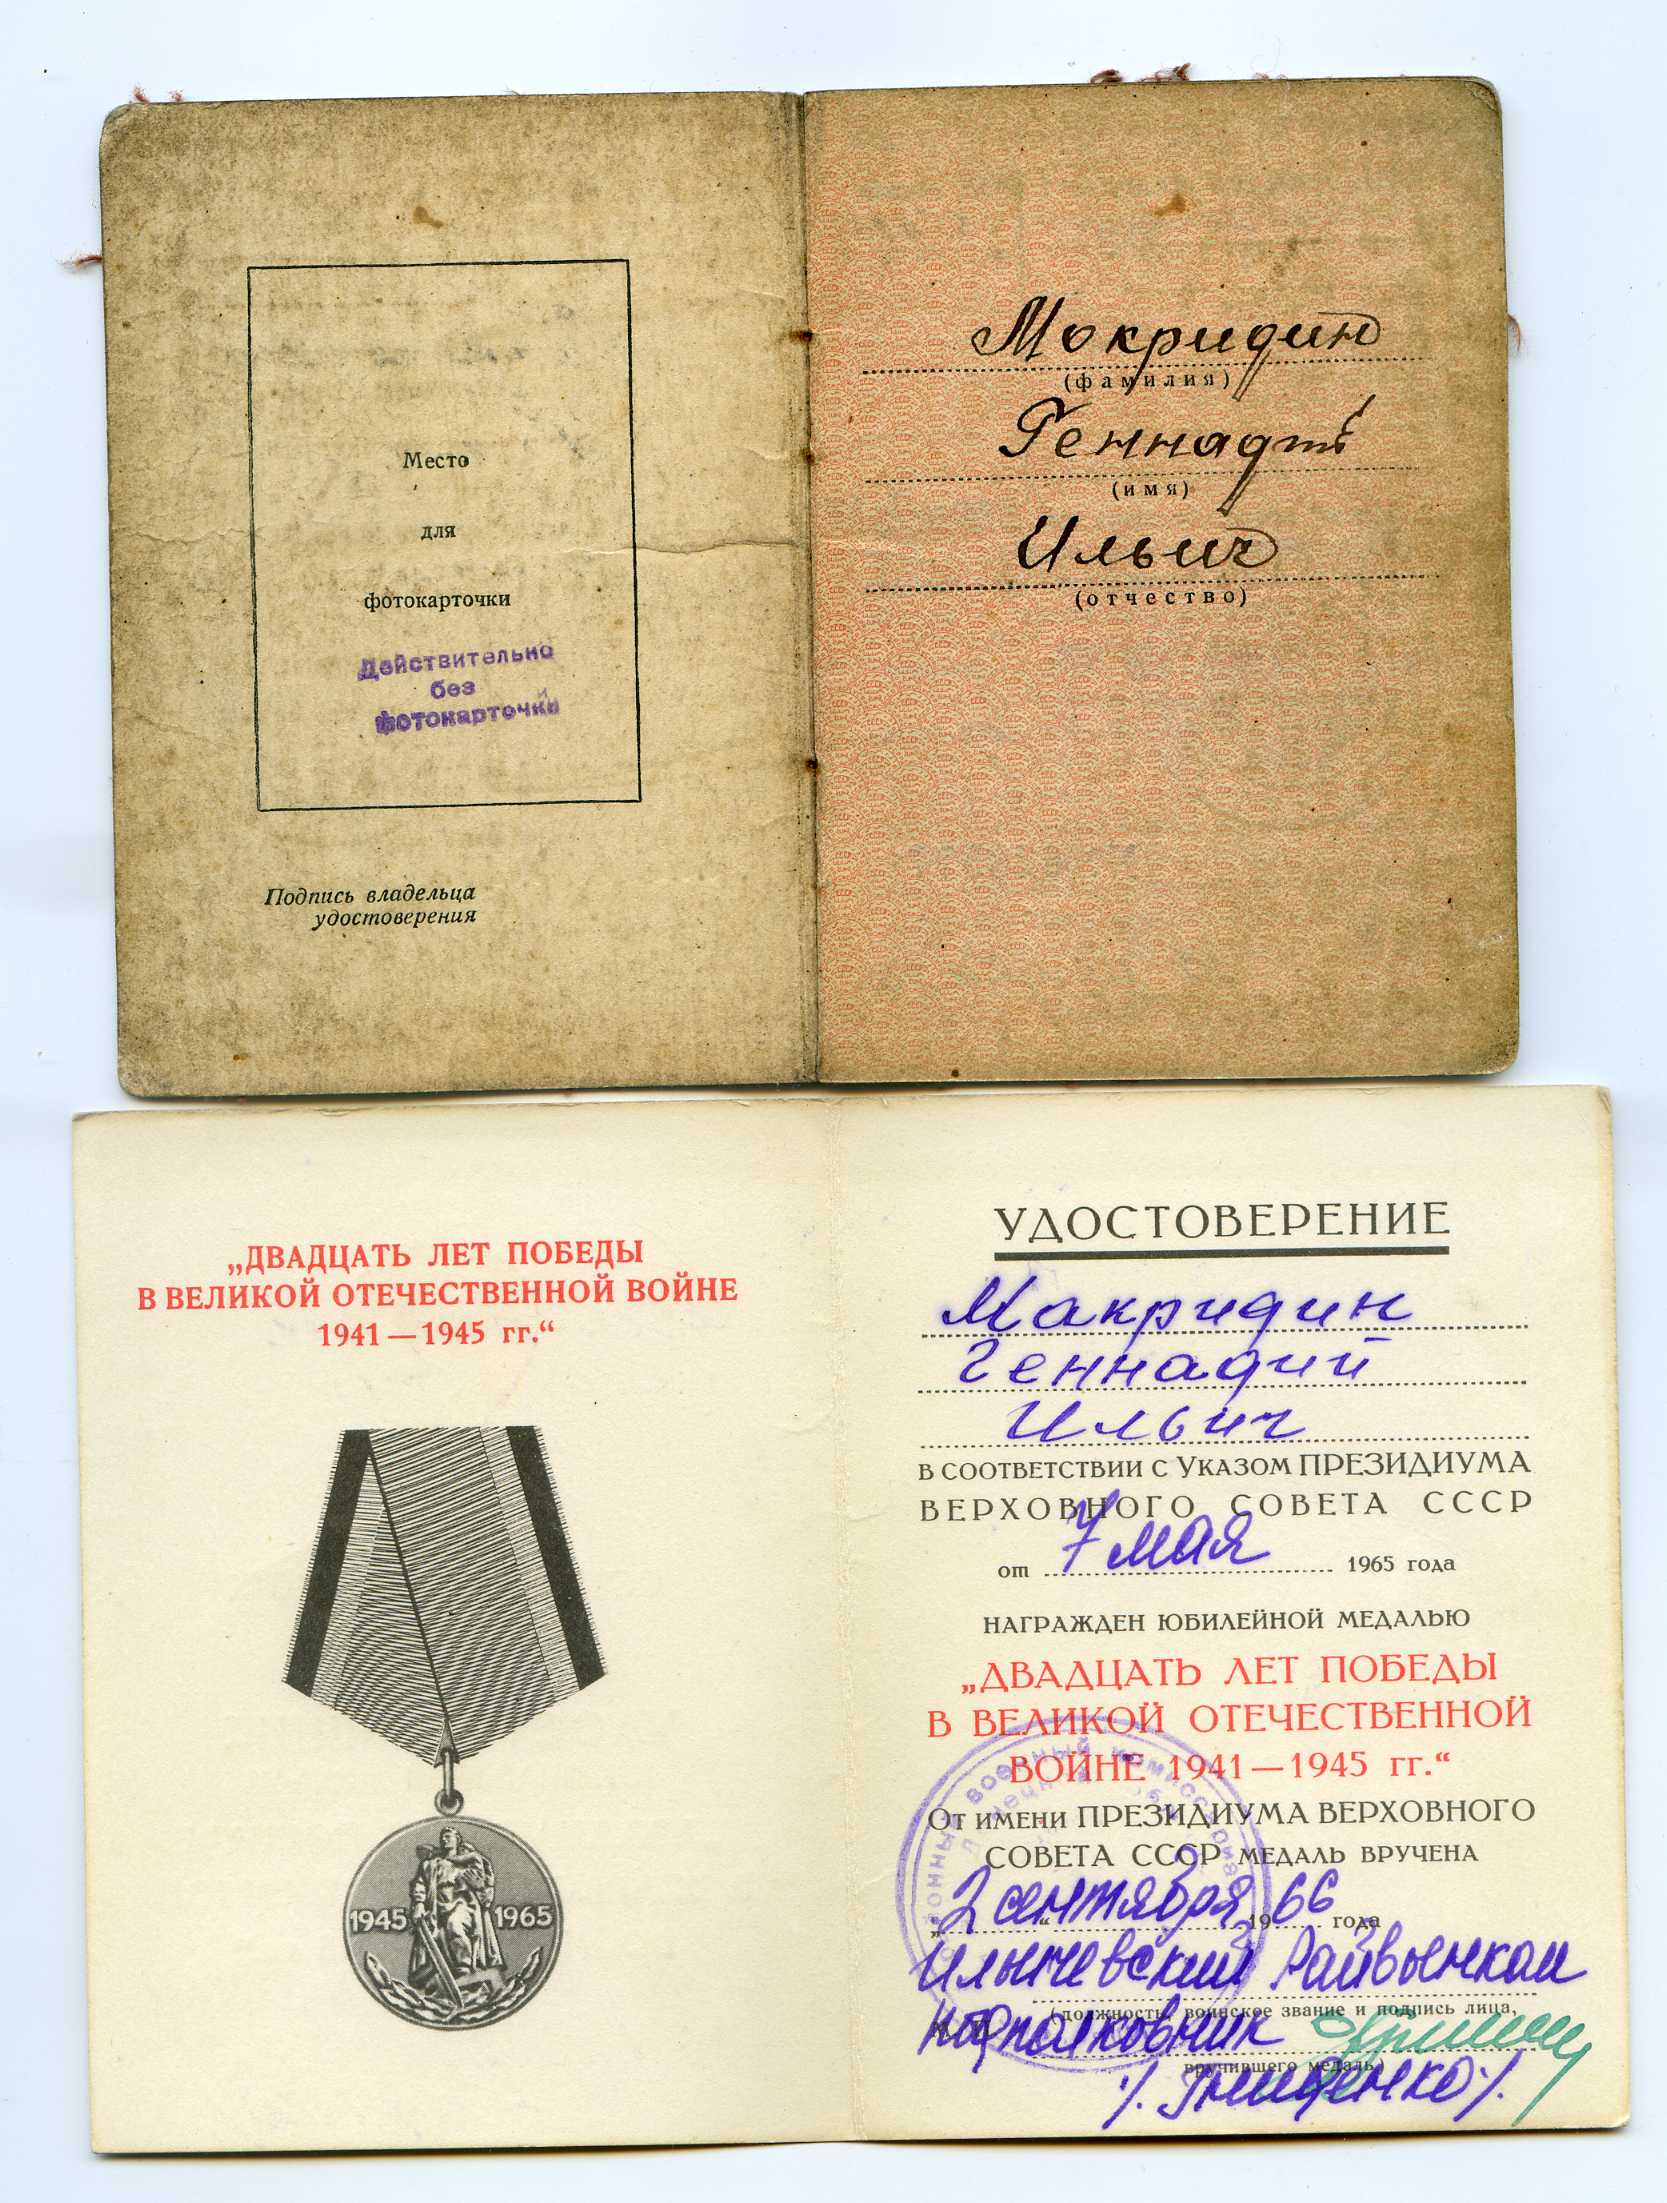 Место
для
фотокарточки
Действительно
без
фотокарточки
Подпись владельца
удостоверения
Мокридин
(фамилия)
Геннадий
(имя)
Ильич
(отчество)
„ДВАДЦАТЬ ЛЕТ ПОБЕДЫ
В ВЕЛИКОЙ ОТЕЧЕСТВЕННОЙ ВОЙНЕ
1941—1945 гг.“
1945 1965
УДОСТОВЕРЕНИЕ
Макридин
Геннадий
Ильич
В СООТВЕТСТВИИ С УКАЗОМ ПРЕЗИДИУМА
ВЕРХОВНОГО СОВЕТА СССР
от 7 мая 1965 года
НАГРАЖДЕН ЮБИЛЕЙНОЙ МЕДАЛЬЮ
„ДВАДЦАТЬ ЛЕТ ПОБЕДЫ
В ВЕЛИКОЙ ОТЕЧЕСТВЕННОЙ
ВОЙНЕ 1941—1945 гг.“
ОТ ИМЕНИ ПРЕЗИДИУМА ВЕРХОВНОГО
СОВЕТА СССР МЕДАЛЬ ВРУЧЕНА
„2“ сентября 1966 года
Райвоенком
(должность, воинское звание и подпись лица,
полковник
вручившего медаль)
/. Гмищенко /.